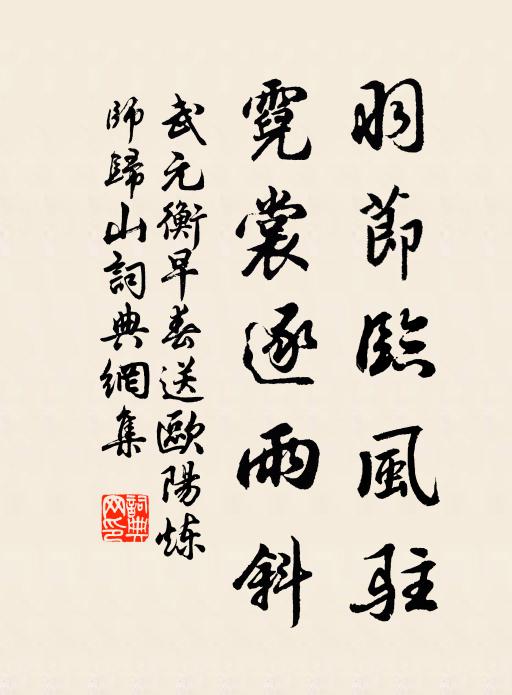 羽節臨風駐
霓裳逐雨斜
武元衡早春送歐陽炼
師歸山詞典網集
詞典
网印